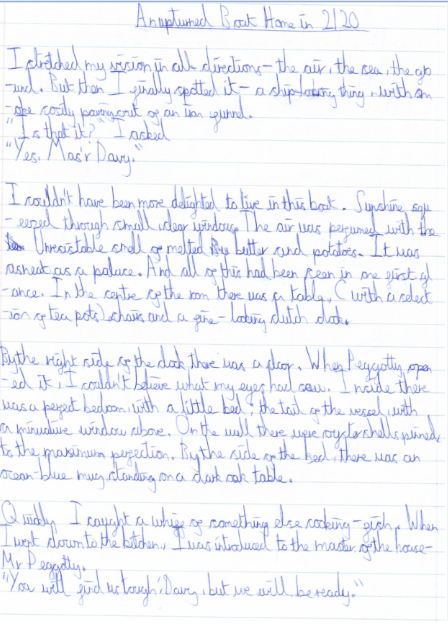 An upturned Boat Home in 2120
I stretched my vision in all directions - the air, the sea, the gro
-und. But then I finally spotted it - a ship-looking thing, with sm
-oke cosily pouring out of an iron funnel.
"Is that it?" I asked
"Yes, Mas'r Davy."
I couldn't have been more delighted to live in this boat. Sunshine squ
-eezed through small, clear windows. The air was perfumed with the
Unresistable smell of melted butter and potatoes. It was
as neat as a palace. And all of this had been seen in one first gl
-ance. In the centre of the room there was a table, (with a select
-ion of tea pots) chairs and a fine-looking dutch clock.
By the right side of the clock there was a door. When Peggotty open
-ed it, I couldn't believe what my eyes had saw. Inside there
was a perfect bedroom, with a little bed; the tail of the vessel, with
a miniature window above. On the wall there were oyster shells pinned
to the maximum perfection. By the side of the bed, there was an
ocean-blue mug standing on a dark oak table.
Quickly I caught a whiff of something else cooking - fish. When
I went down to the kitchen, I was introduced to the master of the house-
Mr Peggotty.
"You will find us tough, Davy, but we will be ready."